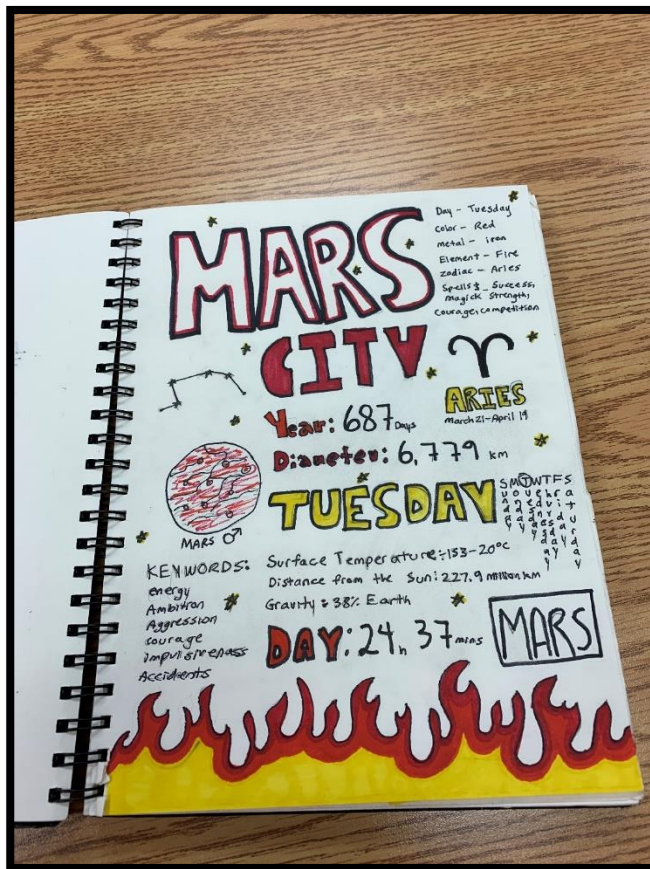 MARS
CITY
Day - Tuesday
Color - Red
metal - iron
Element - Fire
zodiac - Aries
Spells & - Success,
magick strength,
courage, competition
ARIES
March 21-April 19
Year: 687 Days
Diameter: 6,779 km
TUESDAY
Sunday
Monday
Tuesday
Wednesday
Thursday
Friday
Saturday
MARS ♂
KEYWORDS:
energy
Ambition
Aggression
courage
impulsiveness
Accidents
Surface Temperature: -153-20°C
Distance from the Sun: 227.9 million km
Gravity: 38% Earth
DAY: 24h 37 mins
MARS